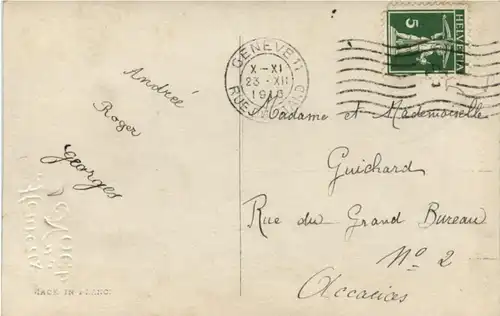 Andrée
Roger
Georges
Heureux
Noël
MADE IN FRANCE
GENÈVE 11
X-XI
23·XII
1910
HELVETIA
5
Madame et Mademoiselle
Guichard
Rue du Grand Bureau
No 2
Accacias